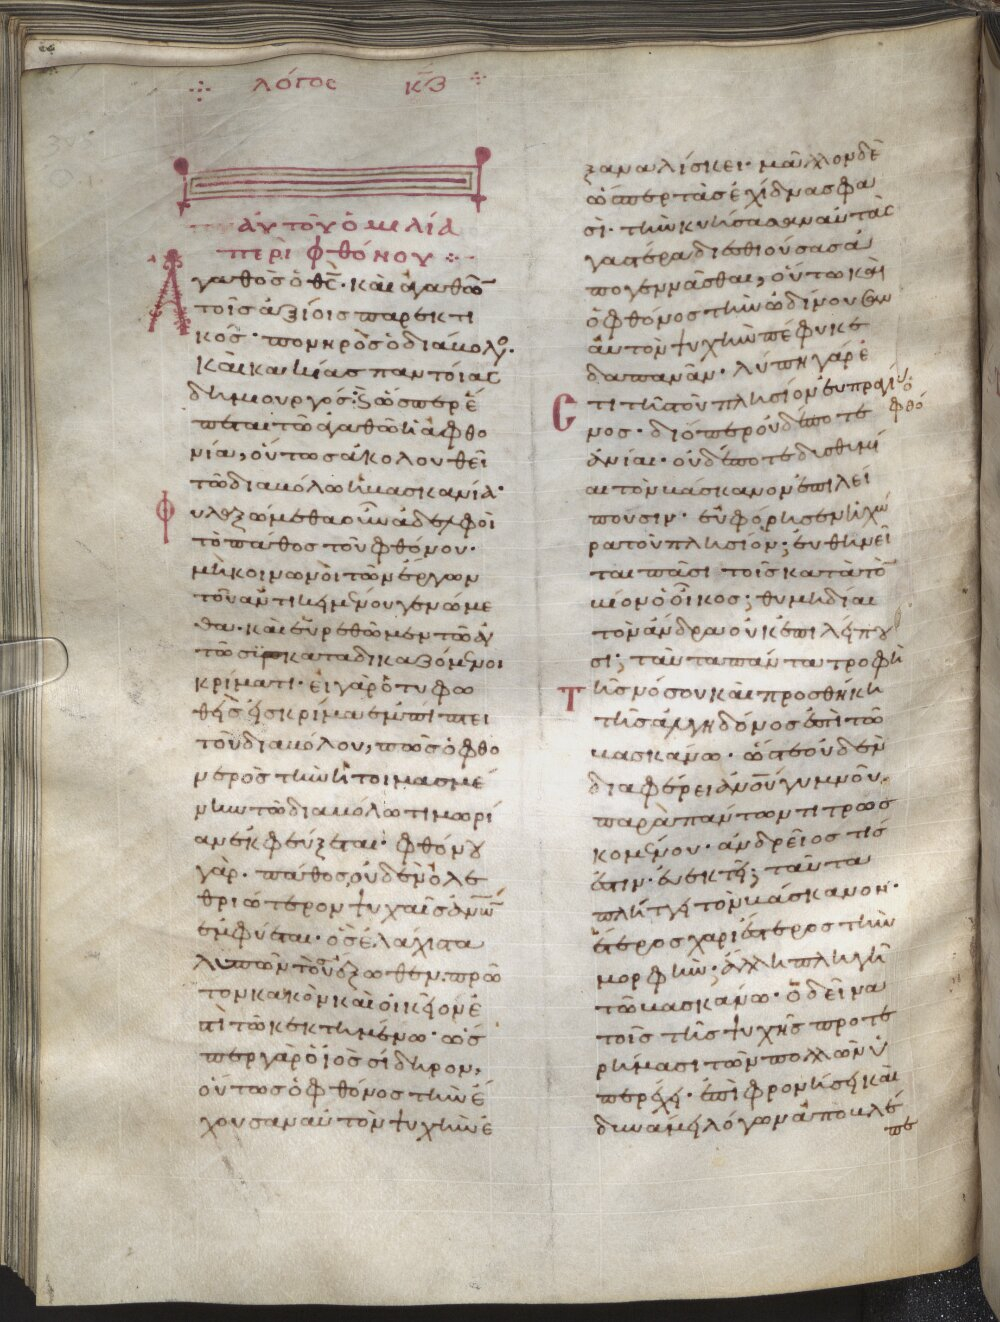 λόγος κζ
τοῦ αὐτοῦ ὁμιλία
περὶ φθόνου
Ἀγαθὸς ὁ θς̅· καὶ ἀγαθῶν
τοῖς ἀξίοις παρεκτι
κός· πονηρὸς ὁ διάβολος·
καὶ κακίας παντοίας
δημιουργός· καὶ ὥσπερ ἕ
πεται τῷ ἀγαθῷ ἡ ἀφθο
νία, οὕτως ἀκολουθεῖ
τῷ διαβόλω ἡ βασκανία·
φυλαξώμεθα οὖν ἀδελφοὶ
τὸ πάθος τοῦ φθόνου·
μὴ κοινωνοὶ τῶν ἔργων
τοῦ ἀντικειμένου γενώμε
θα· καὶ εὑρεθῶμεν τῷ αὐ
τῷ συγκαταδικαζόμενοι
κρίματι· εἰ γὰρ ὁ τυφω
θεὶς εἰς κρίμα ἐμπίπτει
τοῦ διαβόλου, πῶς ὁ φθο
νερὸς τὴν ἡτοιμασμέ
νην τῷ διαβόλω τιμωρί
αν ἐκφεύξεται· φθόνου
γὰρ· πάθος οὐδὲν ὀλε
θριώτερον ψυχαῖς ἀνων
ἐμφύεται· ὃς ἐλάχιστα
λυπῶν τοὺς ἔξωθεν· πρῶ
τον κακὸν καὶ οἰκεῖον ἐ
πὶ τῷ κεκτημένω· ὥς
περ γὰρ ὁ ἰὸς σίδηρον,
οὕτως ὁ φθόνος τὴν ἔ
χουσαν αὐτὸν ψυχὴν ἐ
ξαναλίσκει· μᾶλλον δὲ
ὥσπερ τὰς ἐχίδνας φα
σὶ· τὴν κυήσασαν αὐτὰς
γαστέρα διεσθιούσας ἀ
πογεννᾶσθαι, οὕτω καὶ
ὁ φθόνος τὴν ὠδίνουσαν
αὐτὸν ψυχὴν πέφυκε
δαπανᾶν· λύπη γάρ ἐ
στι τῆς τοῦ πλησίον εὐπραγίας ὁ
φθό
νος· διόπερ οὐδέποτε
ἀνίαι· οὐδέποτε δυσθυμί
αι τὸν βάσκανον ἐπιλεί
πουσιν· εὐφόρησεν ἡ χώ
ρα τοῦ πλησίον; εὐθηνεῖ
ται πᾶσι τοῖς κατὰ τὸν
βίον ὁ οἶκος; θυμηδίαι
τὸν ἄνδρα οὐκ ἐπιλείπου
σι; ταῦτα πάντα τροφὴ
τῆς νόσου καὶ προσθήκη
τῆς ἀλγηδόνος ἐστὶ τῷ
βασκάνω· ὥστε οὐδὲν
διαφέρει ἀνου γυμνοῦ·
παρὰ πάντων τιτρωσ
κομένου· ἀνδρεῖος τίς
ἐστιν· εὐεκτεῖ; ταῦτα
πλήττει τὸν βάσκανον·
ἕτερος χαριέστερος τὴν
μορφήν; ἄλλη πληγὴ
τῷ βασκάνω· ὁ δεῖνα
τοῖς τῆς ψυχῆς προτε
ρήμασι τῶν πολλῶν ὑ
περέχει· ἐπὶ φρονήσει καὶ
δυνάμει λόγων ἀποβλέ
πε